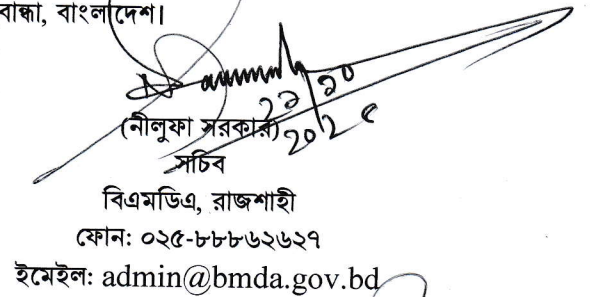 বান্ধা, বাংলাদেশ।
২২ ১০
(নীলুফা সরকার) ২০২৫
সচিব
বিএমডিএ, রাজশাহী
ফোন: ০২৫-৮৮৮৬২৬২৭
ইমেইল: admin@bmda.gov.bd